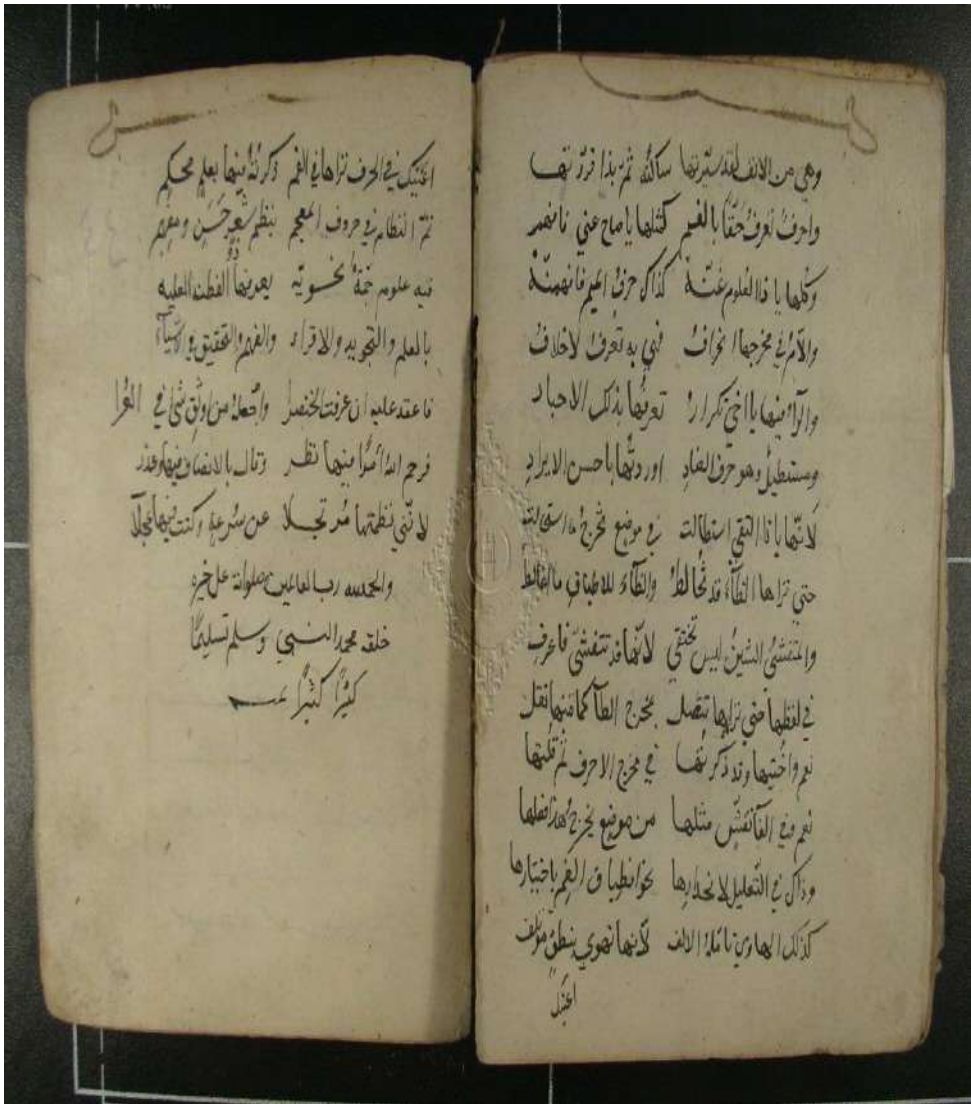 وهي من الانف لقد سيرتها ساكنة ثم بذا قررتها
واحرف تعرف حقا بالفم كمثلها يا صاح عني فافهم
وكلها يا ذا العلوم غنة كذاك حرف الميم فافهمنه
واللام في مخرجها انحراف فهي به تعرف لا خلاف
والراء فيها يا اخي تكرار تعرفها بذلك الاحبار
ومستطيل وهو حرف الضاد اوردتها باحسن الايراد
لانها يا ذا التقي استطالت في موضع مخرج
حتي تراها الظاء قد تخالط والظاء للاطباق ما تغالط
والمتفشي الشين ليس تختفي لانها قد تتفشي فاعرف
في لفظها حتي تراها تتصل بمخرج الطا كما فيها نقل
نعم واختيها وقد ذكرتها في مخرج الاحرف ثم قلتها
نعم وفي الفا تفش مثلها من موضع يخرج هذا فعلها
وذاك في التعليل لانحدارها نحو انطباق الفم باختيارها
كذلك الهاوي تأتيك الالف لانها تهوي بنطق مؤتلف
اعنيك
اعنيك في الحرف تراها في الفم ذكرته فيها بعلم محكم
تم النظام في حروف المعجم بنظم شعر حسن ومعجم
فيه علوم جمة نحوية يعرفها ذوو الفطن العلية
بالعلم والتجويد والاقراء والفهم والتحقيق في الاشياء
فاعقد عليه ان عرفت الخنصرا واجعله من اوثق شئ في العرا
فرحم الله امرأ فيها نظر وقال بالانصاف فيها وعذر
لانني نظمتها مرتجلا عن سرعة وكنت فيها عجلا
والحمد لله رب العالمين وصلواته على خيره
خلقه محمد النبي وسلم تسليما
كثيرا كثيرا